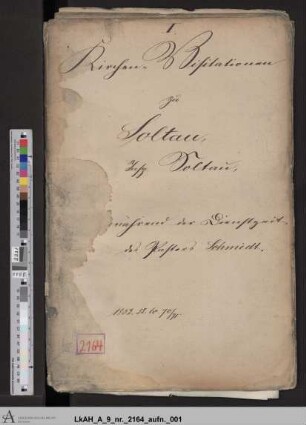 I
Kirchen-Visitationen
zu
Soltau,
Insp. Soltau,
während der Dienstzeit
des Pastors Schmidt.
2164
LkAH_A_9_nr._2164_aufn._001